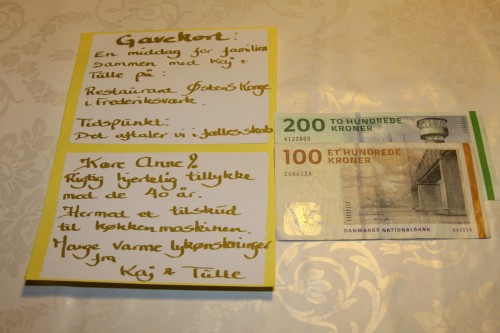 Gavekort:
En middag for familien
sammen med Kaj &
Tulle på:
Restaurant Østens Konge
i Frederiksværk.
Tidspunkt:
Det aftaler vi i fællesskab
Kære Anne!
Rigtig hjertelig tillykke
med de 40 år.
Hermed et tilskud
til køkkenmaskinen.
Mange varme lykønskninger
fra
Kaj & Tulle
200 TO HUNDREDE
KRONER
100 ET HUNDREDE
KRONER
DANMARKS NATIONALBANK